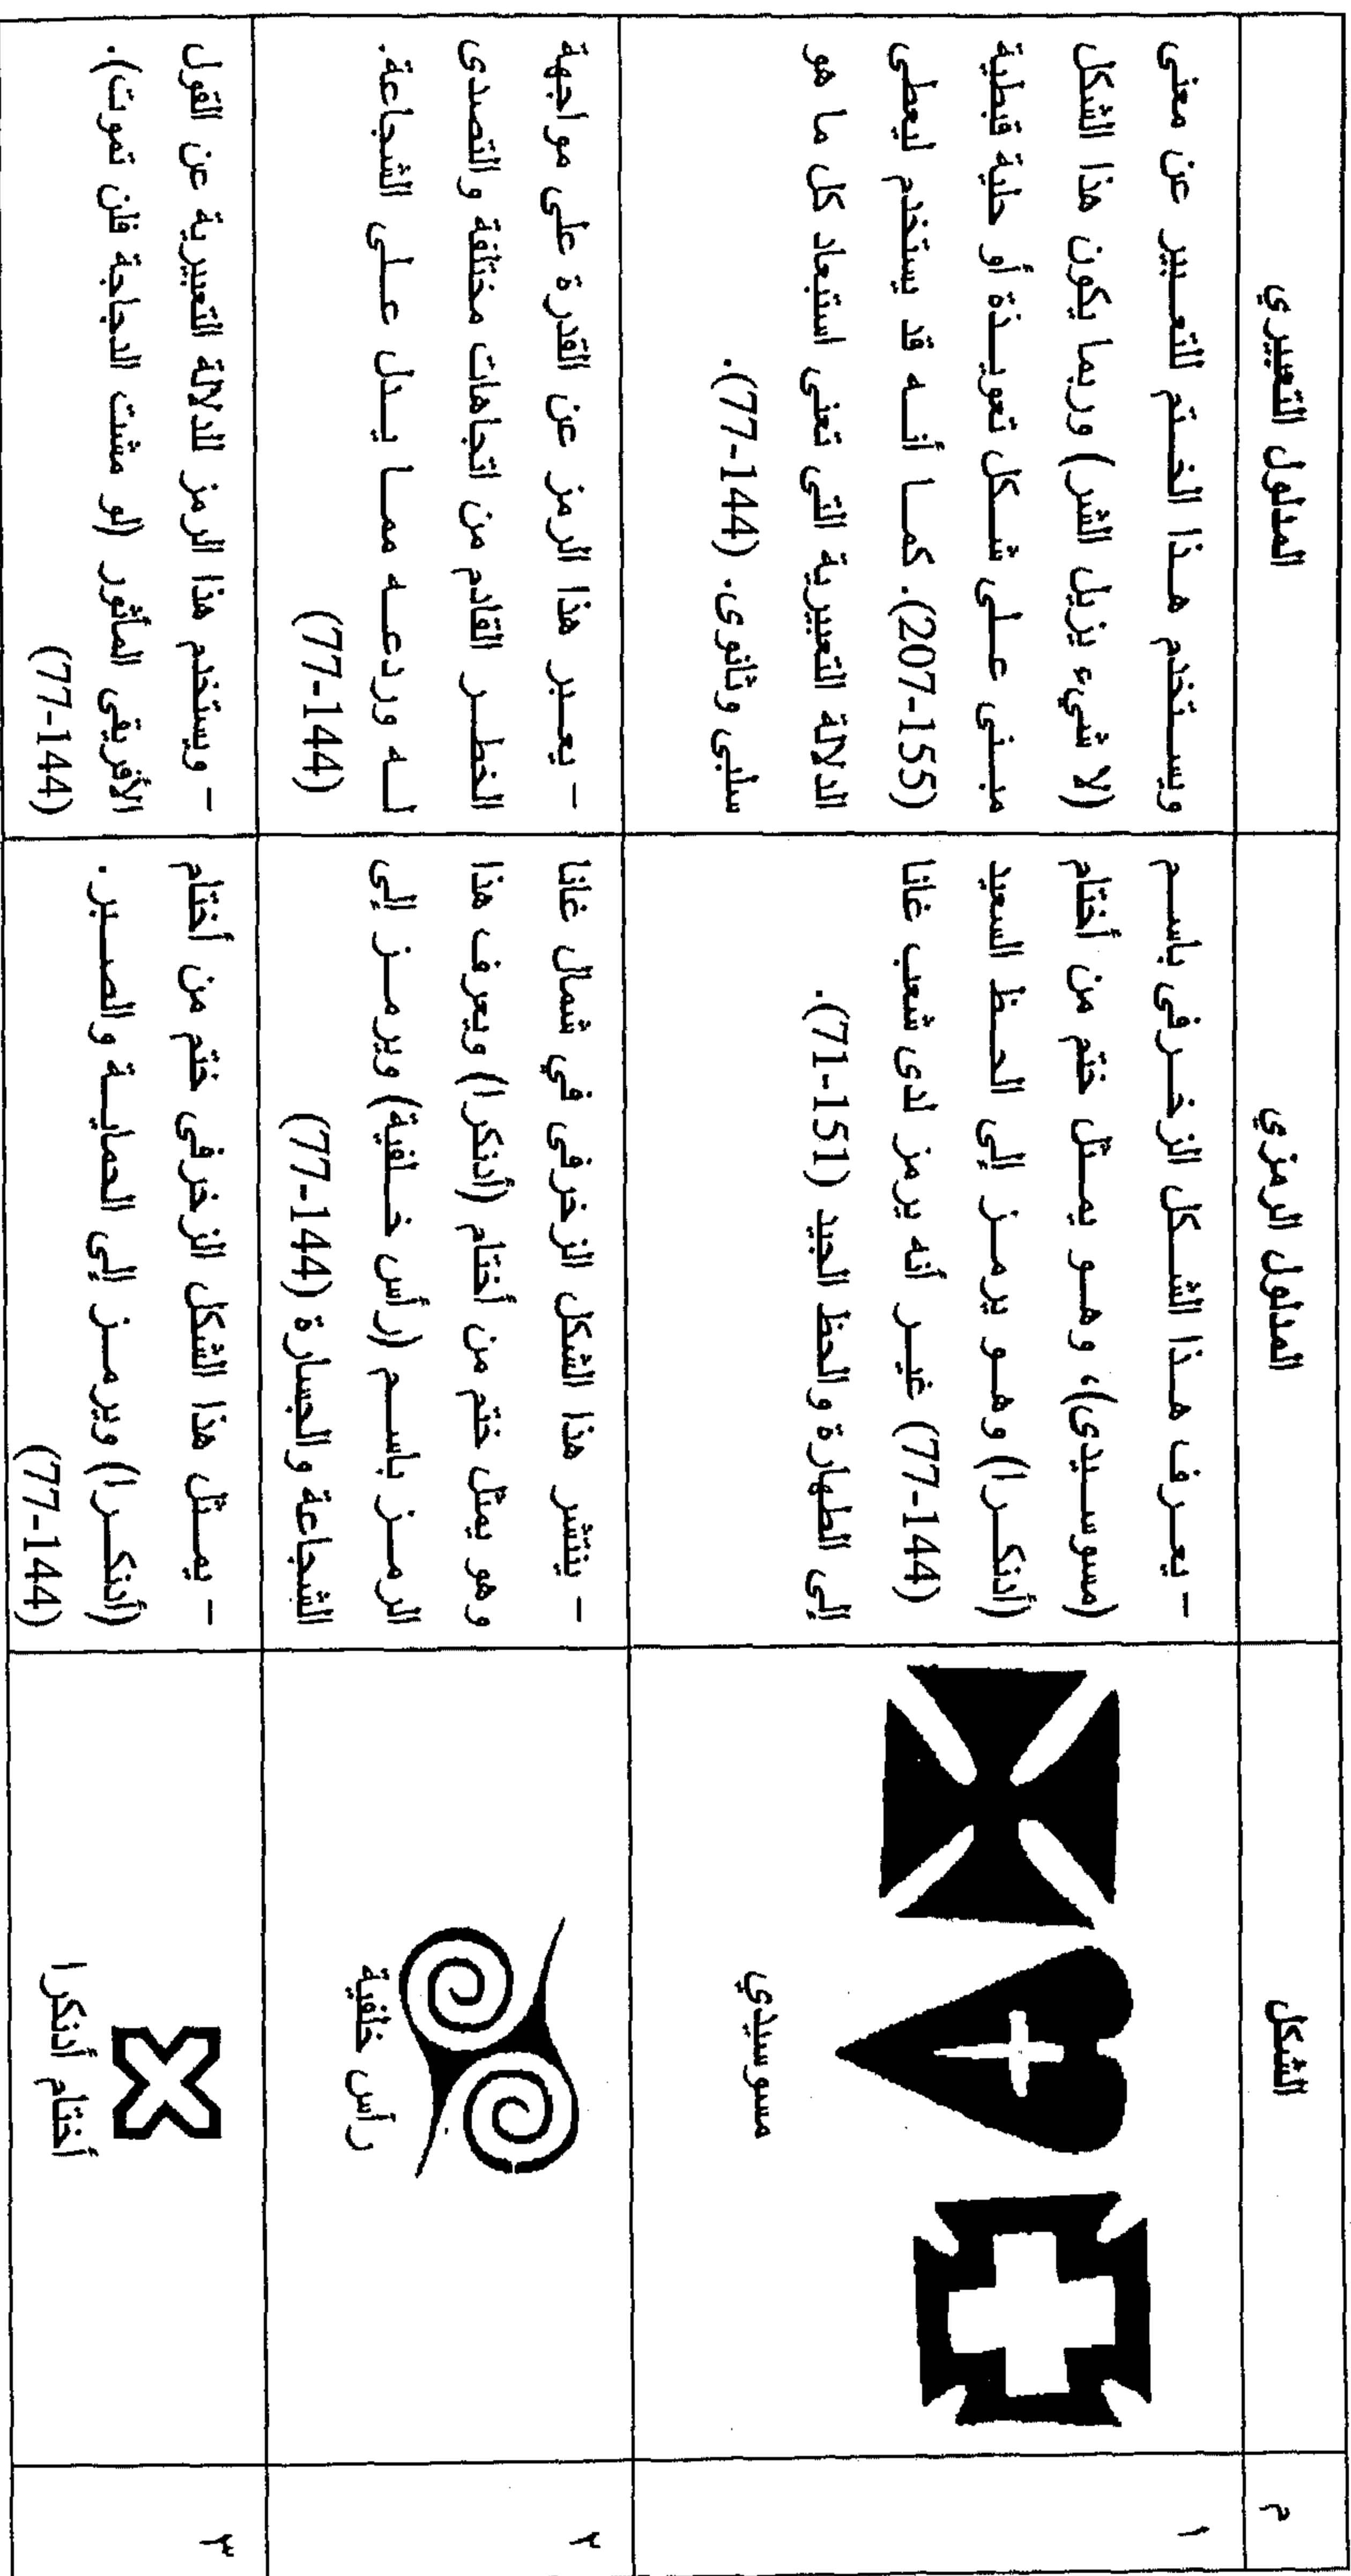 م
الشكل
المدلول الرمزي
المدلول التعبيري
١
موسيدي
- يعرف هذا الشكل الزخرفى باسم
(مسوسيدى)، وهو يمثل ختم من أختام
(أدنكرا) وهو يرمز إلى الحظ السعيد
(77-144) غير أنه يرمز لدى شعب غانا
إلى الطهارة والحظ الجيد (71-151).
ويستخدم هذا الختم للتعبير عن معنى
(لا شيء يزيل الشر) وربما يكون هذا الشكل
مبنى على شكل تعويذة أو حلية قبطية
(207-155). كما أنه قد يستخدم ليعطى
الدلالة التعبيرية التى تعنى استبعاد كل ما هو
سلبى وثانوى. (77-144).
٢
رأس خلفية
- ينتشر هذا الشكل الزخرفى في شمال غانا
وهو يمثل ختم من أختام (أدنكرا) ويعرف هذا
الرمز باسم (رأس خلفية) ويرمز إلى
الشجاعة والجسارة (77-144)
- يعبر هذا الرمز عن القدرة على مواجهة
الخطر القادم من اتجاهات مختلفة والتصدى
له وردعه مما يدل على الشجاعة.
(77-144)
٣
أختام أدنكرا
- يمثل هذا الشكل الزخرفى ختم من أختام
(أدنكرا) ويرمز إلى الحماية والصبر.
(77-144)
- ويستخدم هذا الرمز للدلالة التعبيرية عن القول
الأفريقى المأثور (لو مشت الدجاجة فلن تموت).
(77-144)